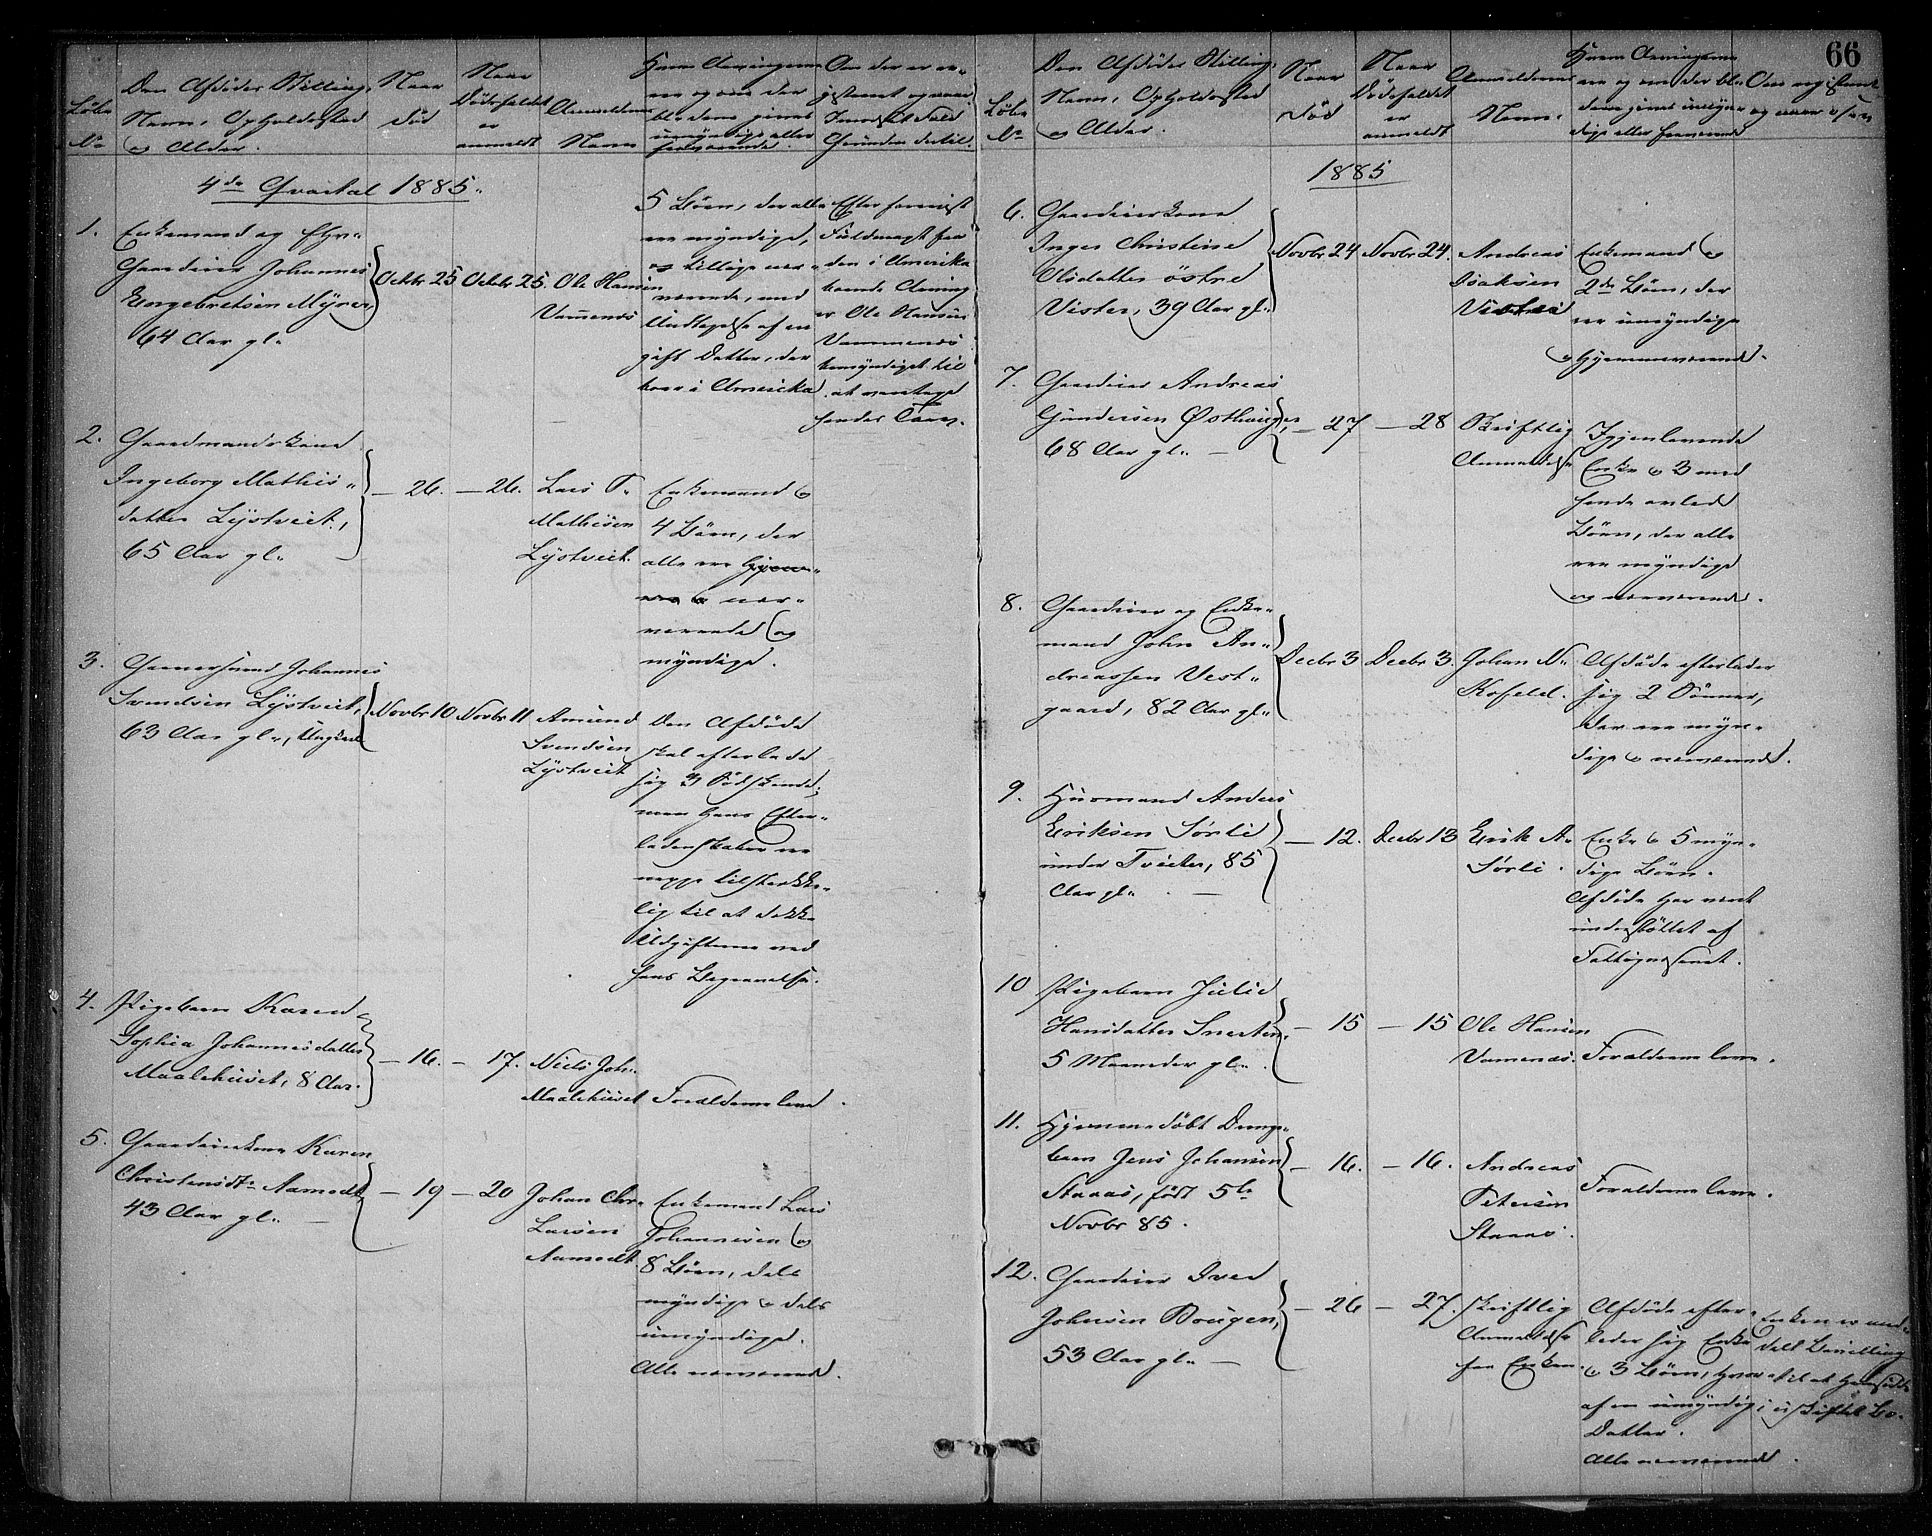 66
Løbe
No
Den Afdødes Stilling,
Navn, Opholdssted
og Alder.
Naar
død
Naar
Dødsfaldet
er
anmeldt
Anmelderens
Navn
Hvem Arvingerne
ere og om der
blandt dem gives
umyndige eller
fraværende.
Om der er re-
gistreret og
i modsat Fald
Grunden dertil.
4de Qvartal 1885.
1.
Enkemand og
Gaardeier Johannes
Engebretsen Myrer
64 Aar gl.
Octbr 25
Octbr 25.
Ole Hansen
Vamenæs
5 Børn, der alle
ere myndige,
og tillige nær-
værende, med
Undtagelse af en
gift Datter, der
boer i Amerika
Efter forevist
Fuldmagt fra
den i Amerika
boende Arving
er Ole Hansen
Vammenæs
bemyndiget til
at varetage
hendes Tarv.
2.
Gaardmandskone
Ingeborg Mathis-
datter Lÿstveit,
65 Aar gl.
— 26.
— 26.
Lars T.
Mathisen
Lÿstveit.
Enkemand og
4 Børn, der
alle ere
nær-
værende og
myndige.
3.
Johannes
Svendsen Lÿstveit,
63 Aar gl., Ungkarl
Novbr 10
Novbr 11
Amund
Svendsen
Lÿstveit
Den Afdøde
skal efterlade
sig 3 Sødskende,
men hans Efter-
ladenskaber er
neppe tilstrække-
lig til at dække
Udgifterne ved
hans Begravelse.
4.
Pigebarn Karen
Sophia Johannesdatter
Maalehuset, 8 Aar.
— 16.
— 17.
Niels Joh.
Maalehuset
Forældrene leve.
5.
Gaardeierkone Karen
Christensdtr Aamodt
43 Aar gl. —
— 19
— 20
Johan Chr.
Larsen
Aamodt
Enkemand Lars
Johannesen og
8 Børn, dels
myndige og dels
umyndige.
Alle nærværende.
Løbe
No
Den Afdødes Stilling,
Navn, Opholdssted
og Alder.
Naar
død
Naar
Dødsfaldet
er
anmeldt
Anmelderens
Navn.
Hvem Arvingerne
ere og om der bl.
dem gives umyn-
dige eller fraværende
Om registreret
1885
6.
Gaardeierkone
Inger Christine
Olsdatter østre
Vister, 39 Aar gl.
Novbr 24
Novbr 24.
Andreas
Isaksen
Vister
Enkemand og
2de Børn, der
ere umyndige
og hjemmeværende.
7.
Gaardeier Andreas
Gundersen Østhuger,
68 Aar gl. —
— 27
— 28
Skriftlig
Anmeldelse
Igjenlevende
Enke og 3 med
hende avlede
Børn, der alle
ere myndige
og nærværende.
8.
Gaardeier og Enke-
mand John An-
dreassen Vest-
gaard, 82 Aar gl.
Decbr 3
Decbr 3.
Johan N.
Kofeld.
Afdøde efterlader
sig 2 Sønner,
der ere myn-
dige og nærværende.
9.
Husmand Anders
Eriksen Sørli
under Tveiter, 85
Aar gl. —
— 12.
Decbr 13
Erik A.
Sørli.
Enke og 5 myn-
dige Børn.
Afdøde har været
understøttet af
Fattigvæsenet.
10
Pigebarn Julie
Hansdatter Snerten
5 Maaneder gl.
— 15
— 15
Ole Hansen
Vamenæs.
Forældrene leve.
11.
Hjemmedøbt Drenge-
barn Jens Johansen
Staaas, født 5te
Novbr 85.
— 16.
— 16.
Andreas
Petersen
Staaas.
Forældrene leve.
12.
Gaardeier Iver
Johnsen Bougen,
53 Aar gl. —
— 26
— 27.
Skriftlig
Anmeldelse
fra Enken.
Afdøde efter-
lader sig Enke
og 3 Børn, hvor-
af en umyndig
Datter.
Alle nærværende.
Enken er med-
delt Bevilling
til at hensidde
i uskiftet Bo.